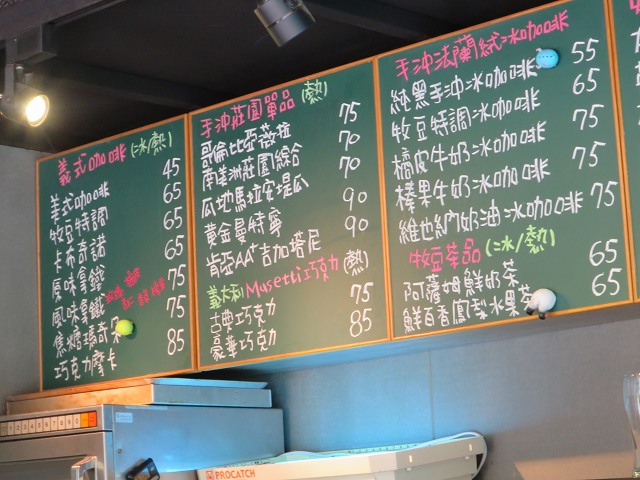 義式咖啡 (冰/熱)
美式咖啡 45
牧豆特調 65
卡布奇諾 65
原味拿鐵 65
風味拿鐵 75
焦糖瑪奇朵 75
巧克力摩卡 85
手沖莊園單品 (熱)
哥倫比亞薇拉 75
南美洲莊園綜合 70
瓜地馬拉安堤瓜 70
黃金曼特寧 90
肯亞AA吉加塔尼 90
義大利Musetti巧克力 (熱)
古典巧克力 75
豪華巧克力 85
手沖法蘭絨冰咖啡
純黑手沖冰咖啡 55
牧豆特調冰咖啡 65
橘皮牛奶冰咖啡 75
榛果牛奶冰咖啡 75
維也納奶油冰咖啡 75
牧豆茶品 (冰/熱)
阿薩姆鮮奶茶 65
鮮百香鳳梨水果茶 65
PROCATCH